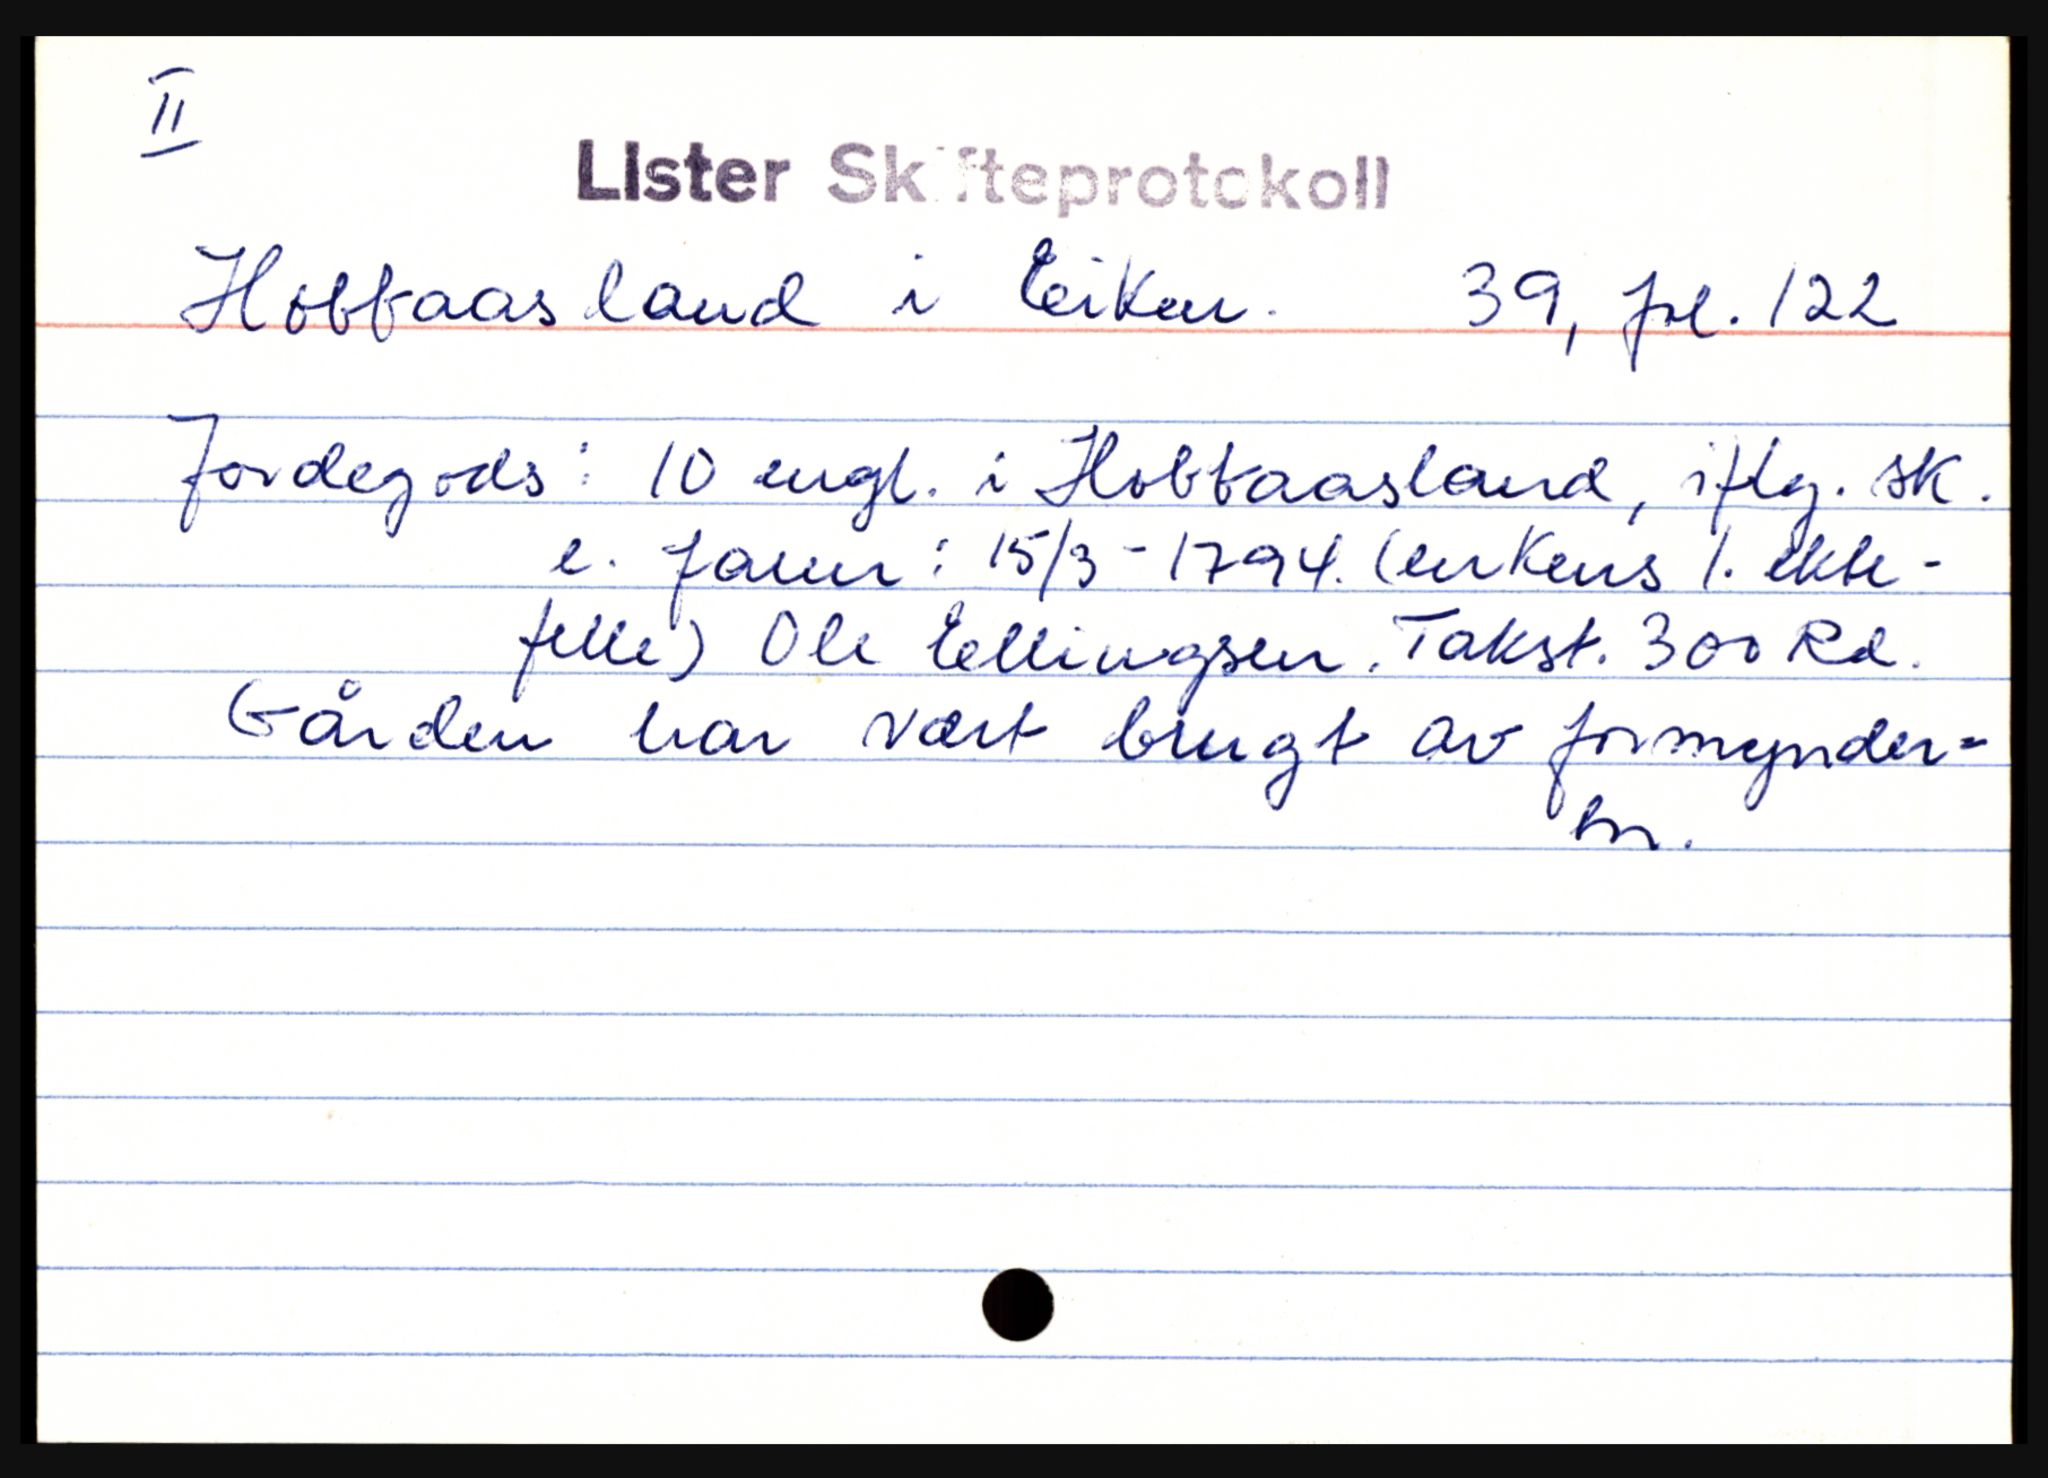 II
LIster Skifteprotokoll
Hobbaasland i Eiken. 39, fol. 122
Jordegods: 10 engl. i Hobbaasland, iflg. sk.
e. faren: 15/3-1794. (enkens 1. ekte-
felle) Ole Ellingsen. Takst. 300 Rd.
Gården har vært brugt av formynder-
en.